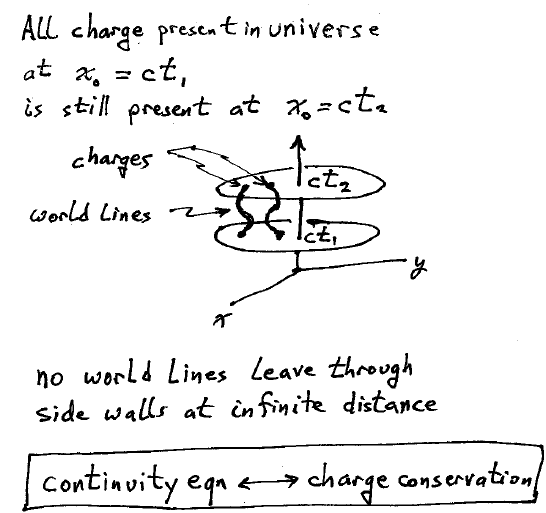 All charge present in universe
at x₀ = ct₁
is still present at x₀ = ct₂
charges
ct₂
world Lines
ct₁
y
x
no world Lines Leave through
side walls at infinite distance
continuity eqn ⟷ charge conservation